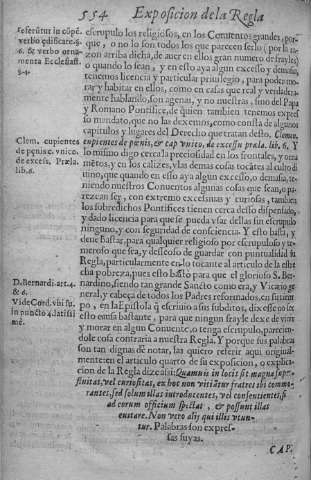 554 Exposicion de la Regla
escrupulo los religiosos, en los Conuentos grandes (por-
que, o no lo son todos los que parecen serlo (por la ra-
zon arriba dicha, de auer en ellos gran numero de frayles)
o quando lo sean, y en esto aya algun excesso, y demasia,
tenemos licencia y particular priuilegio, para poder mo-
rar y habitar en ellos, como en casas que real y verdadera-
mente hablando, son agenas, y no nuestras, sino del Papa
y Romano Pontifice, de quien tambien tenemos expres
so mandato, que no las dexemos, como consta de algunos
capitulos y lugares del Derecho que tratan desto, Clemen.
cupientes de pœnis, & cap. vnico, de excessu præla. lib. 6. Y
lo mismo digo cerca la preciosidad en los frontales, y orna
mẽtos, y en los calizes, y las demas cosas tocãtes al culto di
uino, que quando en esto aya algun excesso, o demasia, te-
niendo nuestros Conuentos algunas cosas que sean, o pa-
rezcan ser, con extremo excelsinas y curiosas, tambien
los sobredichos Pontifices tienen cerca desto dispensado,
y dado licencia para que se pueda vsar dellas sin escrupulo
ninguno, y con seguridad de consciencia. Y esto basta, y
deue bastar, para qualquier religioso por escrupuloso y te-
meroso que sea, y desseoso de guardar con puntualidad su
Regla, particularmente en lo tocante al articulo de la estre
cha pobreza, pues esto bastó para que el glorioso S. Ber-
nardino, siendo tan grande Sancto como era, y Vicario ge
neral, y cabeça de todos los Padres reformados, en su tiem
po, en la Epistola q̃ escriuio a sus subditos, dixesse que
esto emis bastante, para que ningun frayle dexe de viuir
y morar en algun Conuento, o tenga escrupulo, parecien-
dole cosa contraria a nuestra Regla. Y porque sus palabras
son tan dignas de notar, las quiero referir aqui original-
mente en el articulo quarto de su exposicion, o explica-
cion de la Regla dize assi: Quamuis in locis sit magna supe-
fluitas, vel curiositas, ex hoc non vitiãtur fratres ibi commo-
rantes, sed solum illas introducentes, vel consentientes, si
ad eorum officium spectat, & possunt illas
euitare. Non vero alij qui illis vtun-
tur. Palabras son expres-
sas suyas.
CAP.
referũtur in cõpẽ.
verbo ędificare. §.
6. & verbo orna-
menta Ecclesiast.
§. 1.
Clem. cupientes
de pęnis. c. vnico.
de excess. Præla.
lib. 6.
D. Bernardi. art. 4.
& 6.
Vide Cord. vbi sup.
in pũcto 4. latissi
mè.